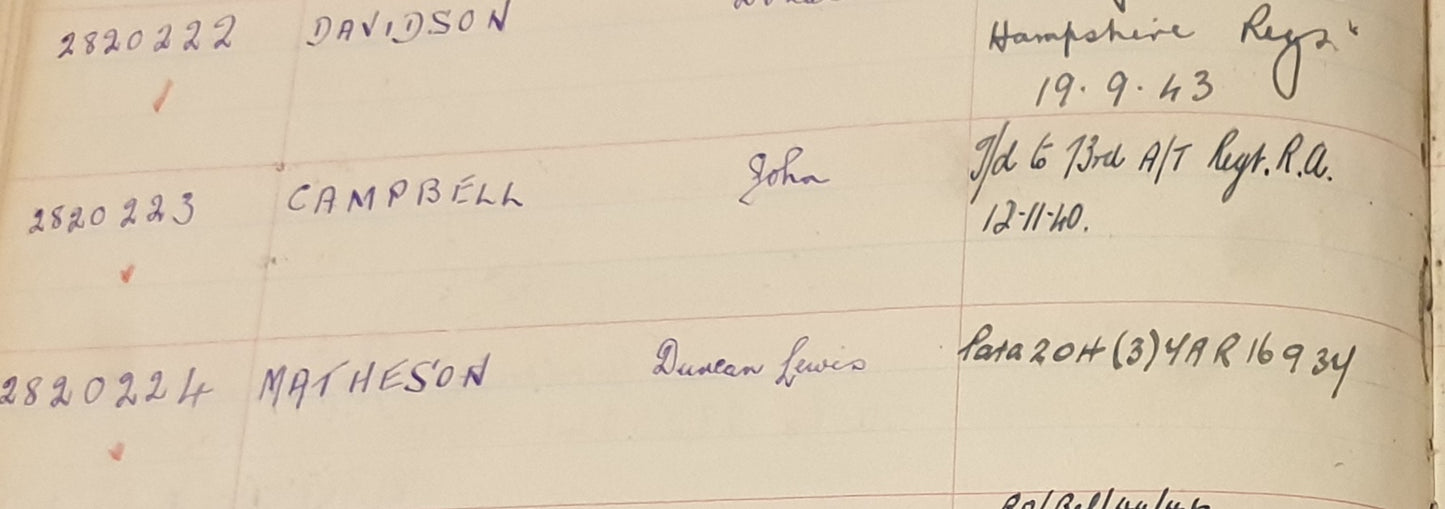 2820222 DAVIDSON Hampshire Regt
19.9.43
2820223 CAMPBELL John T/d to 73rd A/T Regt. R.A.
12-11-40.
2820224 MATHESON Duncan Lewis Para 204 (3) YAR 16934